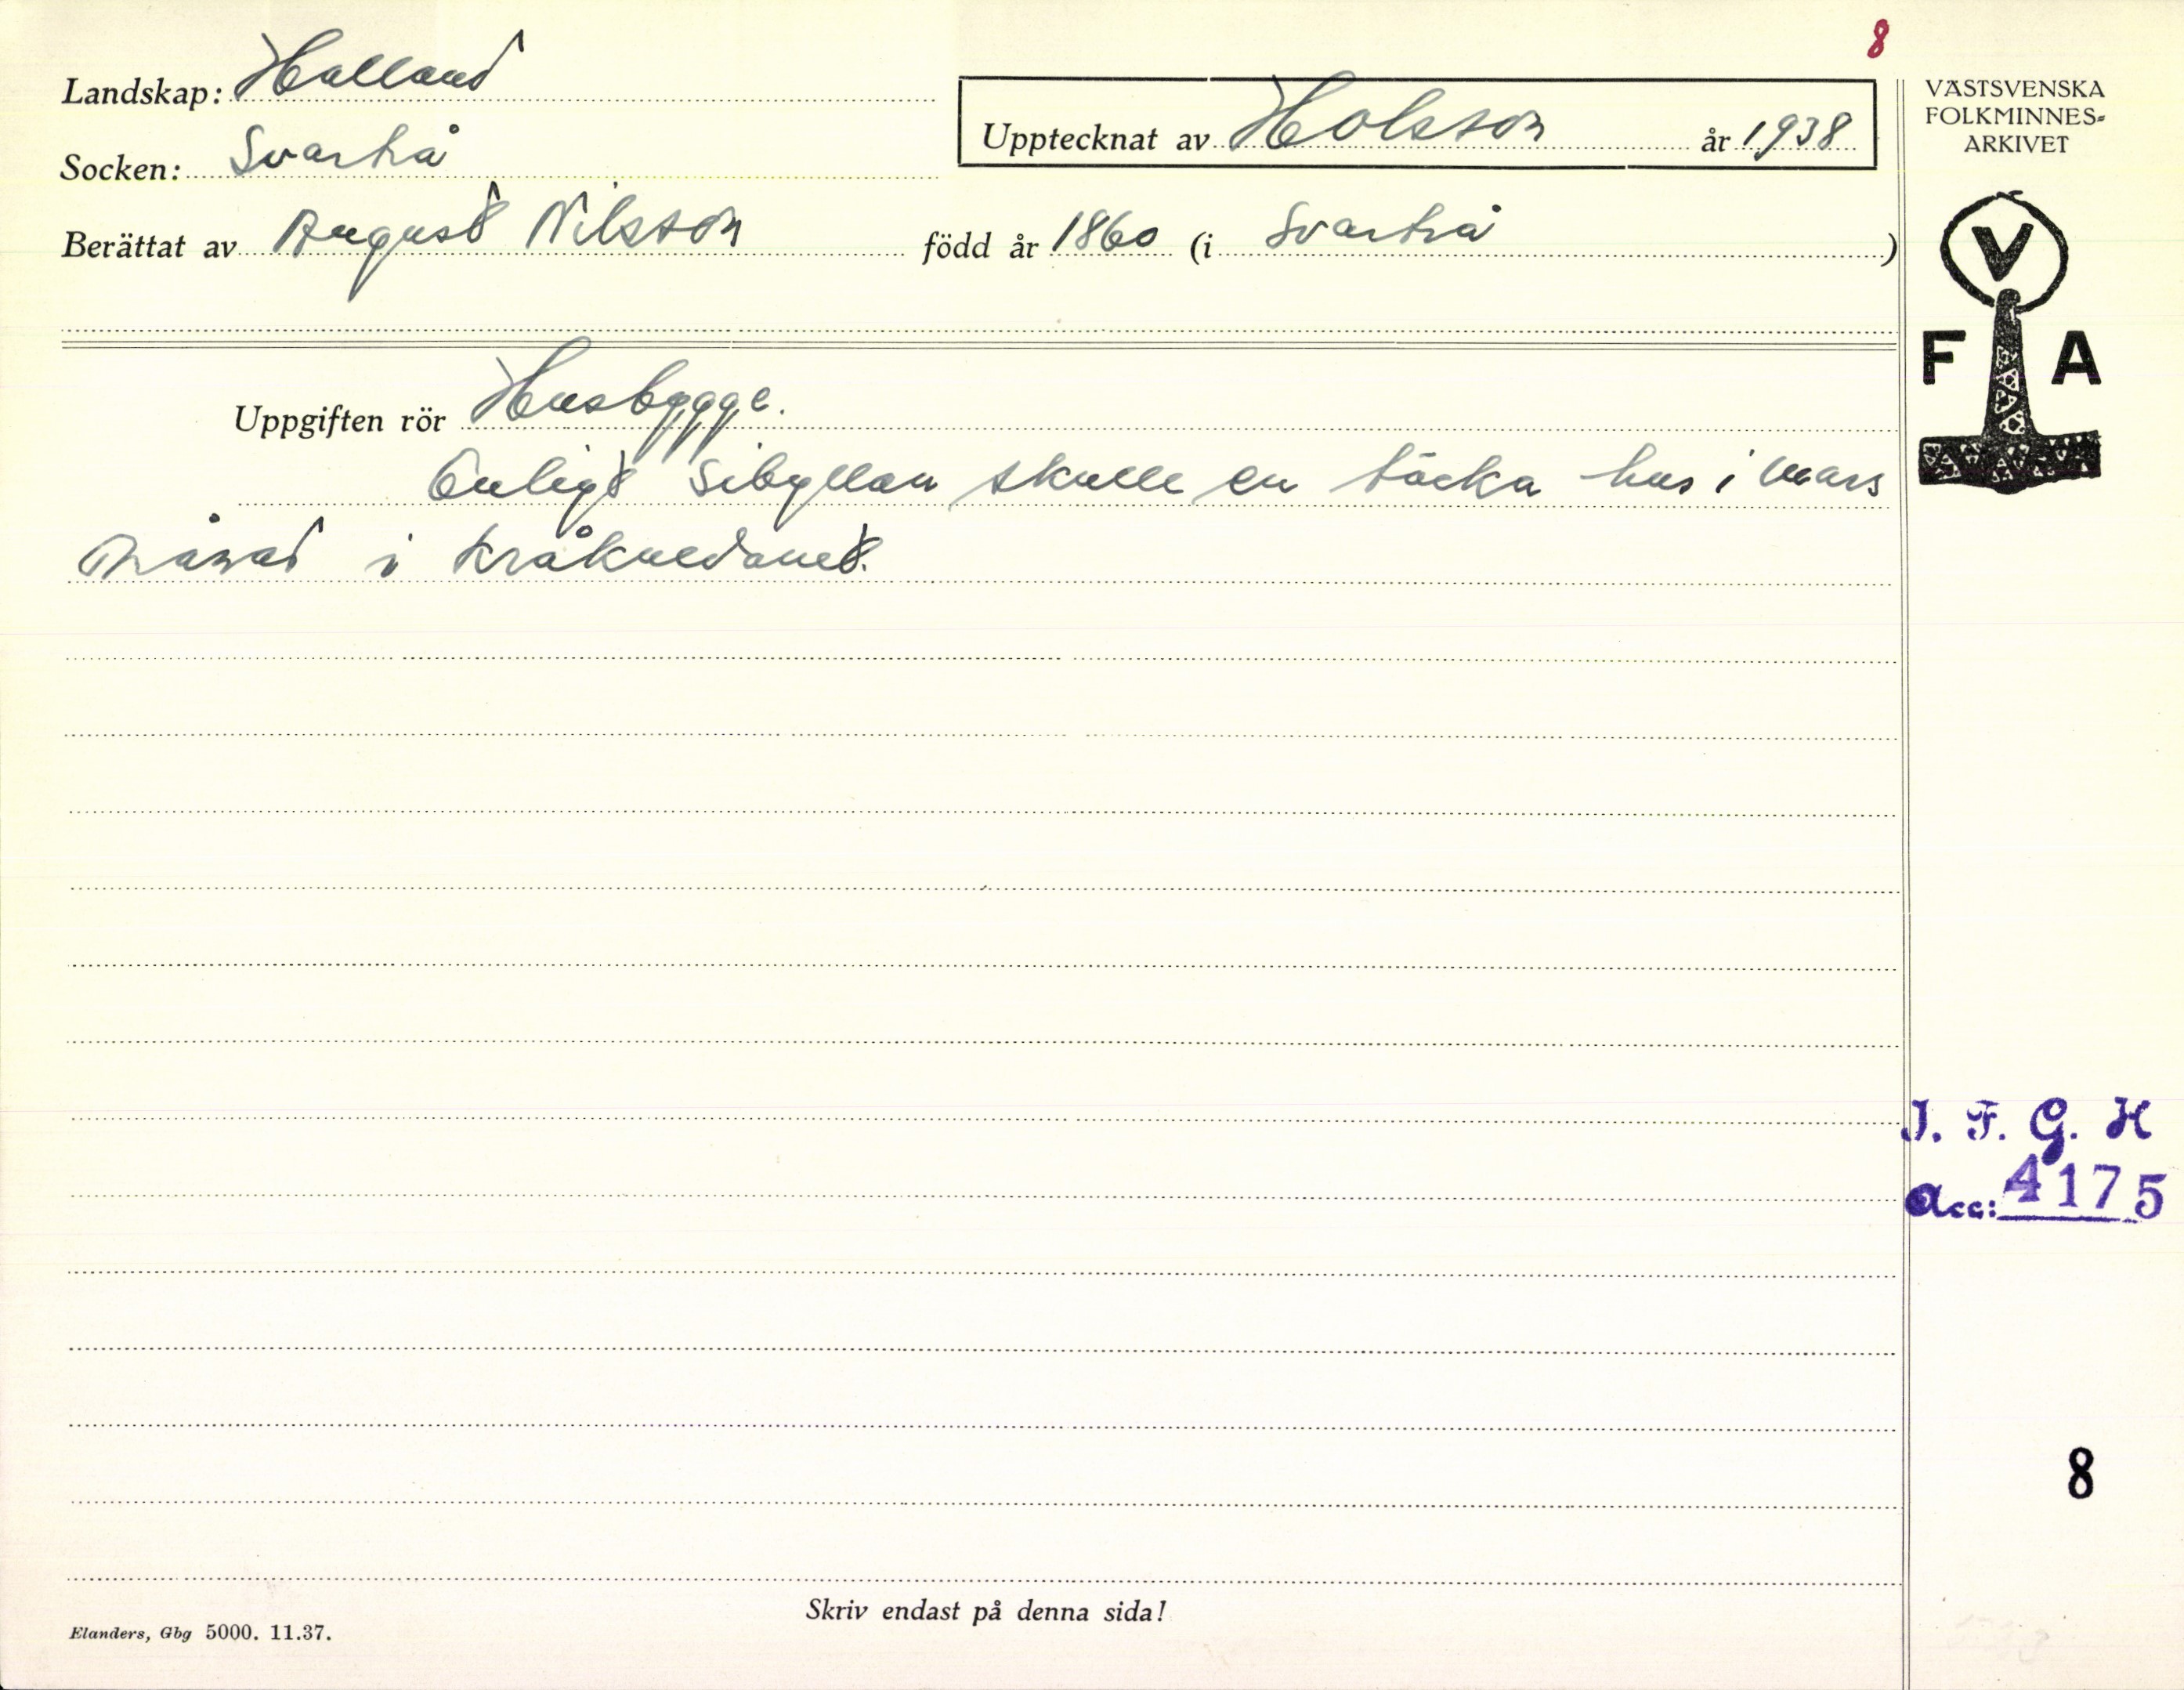 8
Landskap: Halland
Socken: Svartrå
Upptecknat av Holsson år 1938
Berättat av August Nilsson född år 1860 (i Svartrå )
VÄSTSVENSKA
FOLKMINNES-
ARKIVET
V
F A
Uppgiften rör Husbygge.
Enligt Sibyllan skulle en täcka hus i mars
månad i kråknedanet.
I. F. G. H
Acc: 4175
8
Skriv endast på denna sida!
Elanders, Gbg 5000. 11.37.